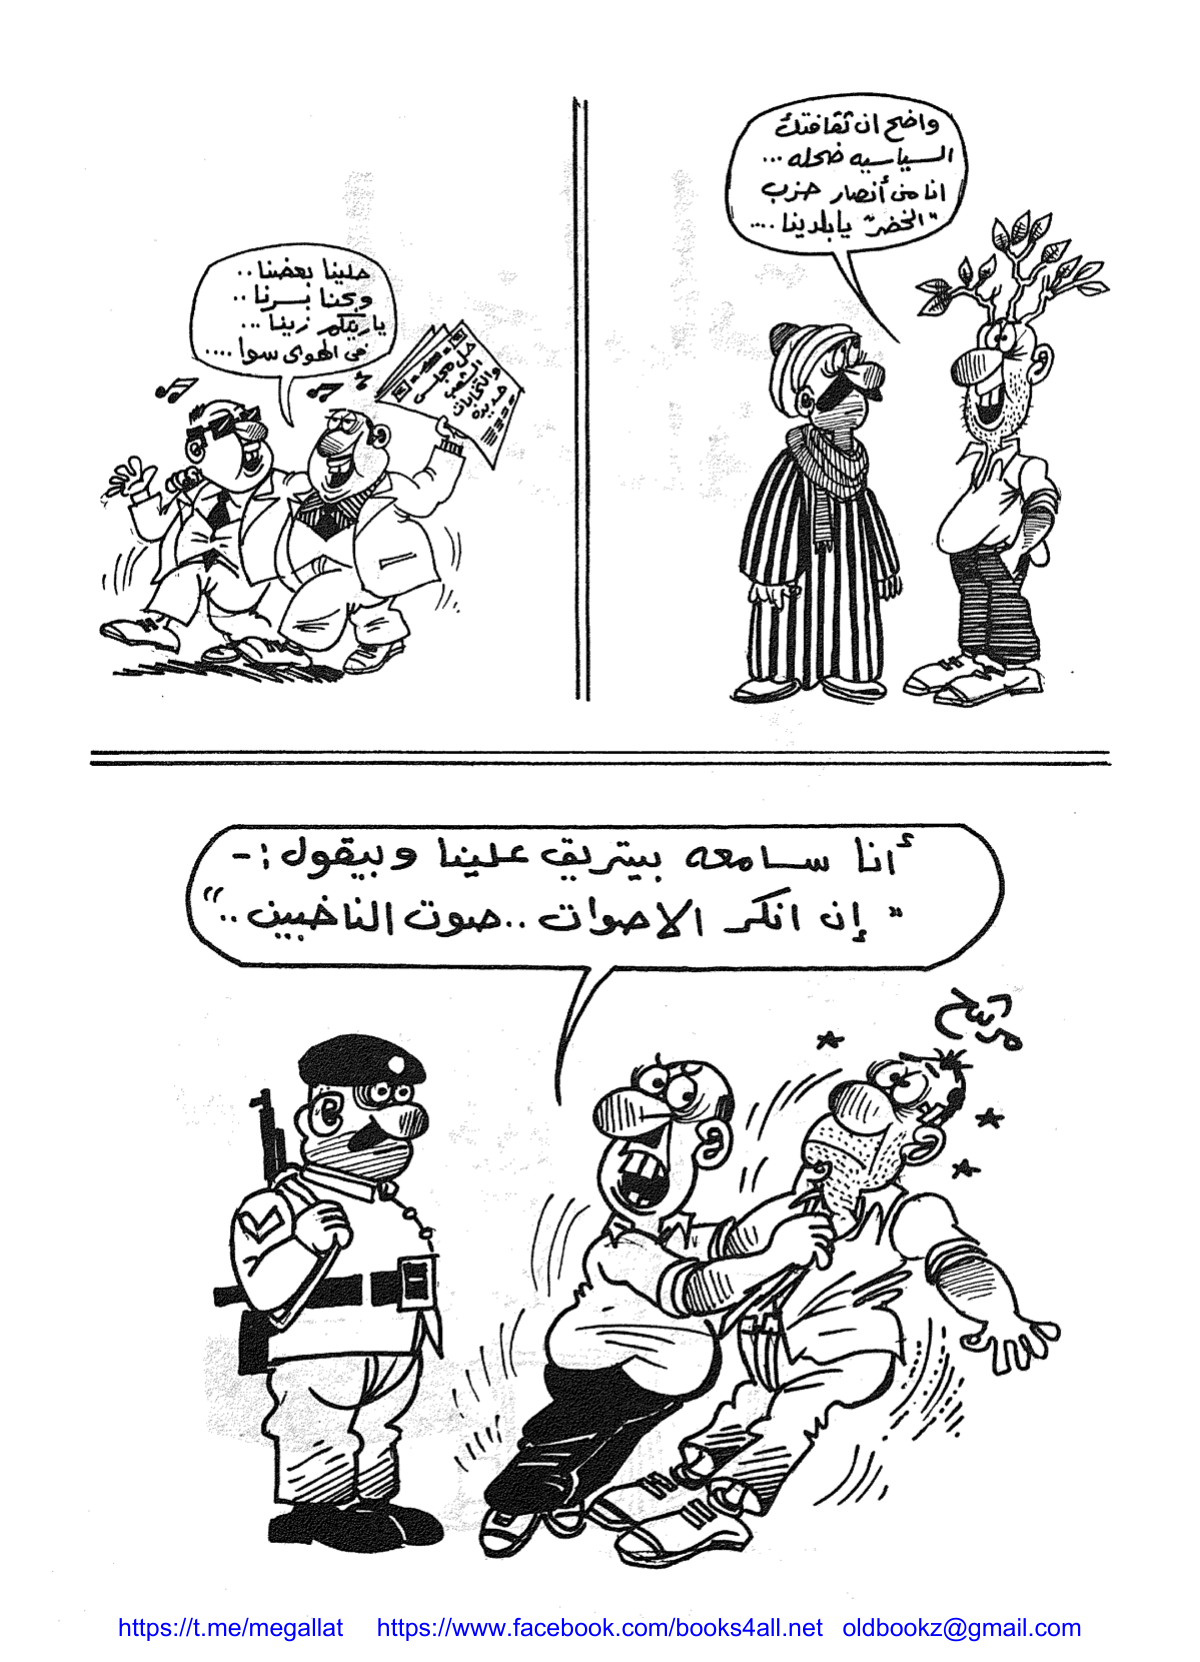 واضح ان ثقافتك
السياسيه ضحله ...
انا من أنصار حزب
"الخضر" يا بلدينا ....
حلينا بعضنا ..
وبحنا بسرنا ..
ياريتكم زينا ...
في الهوى سوا ....
حل مجلس
الشعب
وانتخابات
جديدة
أنا سامعه بيتريق علينا وبيقول :-
" إن انكر الاصوات .. صوت الناخبين .. "
https://t.me/megallat https://www.facebook.com/books4all.net oldbookz@gmail.com